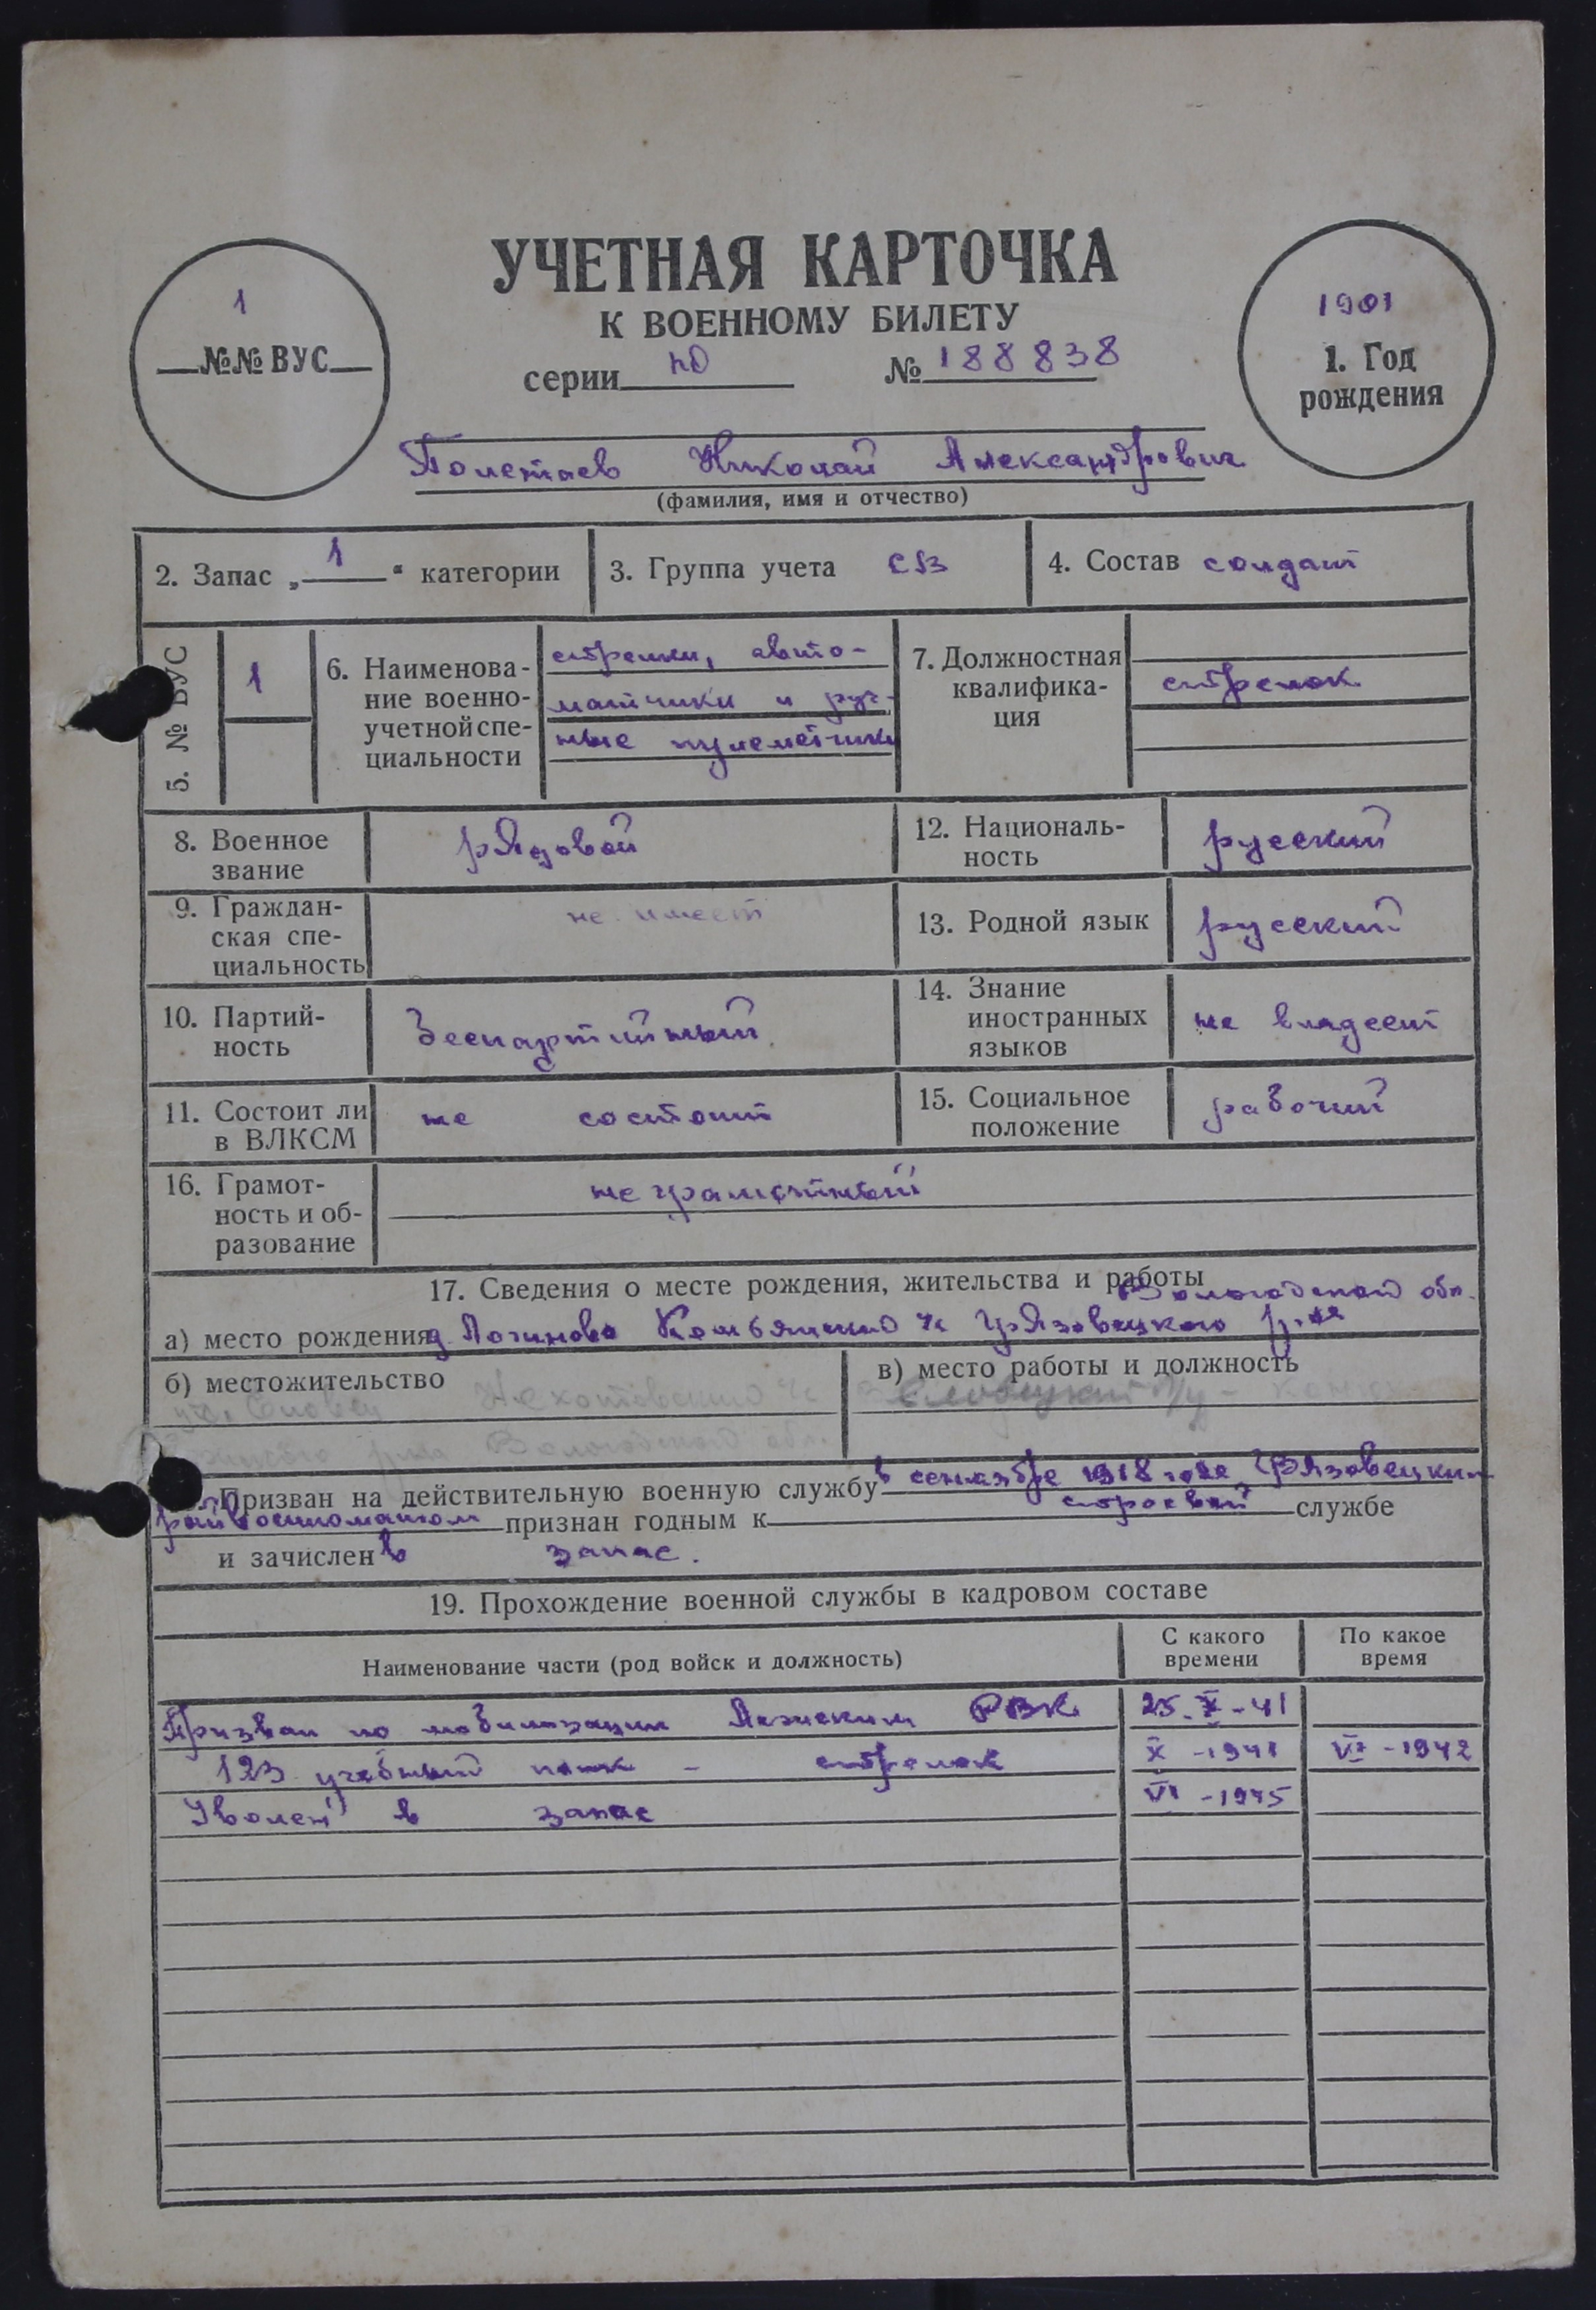 УЧЕТНАЯ КАРТОЧКА
К ВОЕННОМУ БИЛЕТУ
1
№№ ВУС
серии № 188838
1901
1. Год
рождения
Полетаев Николай Александрович
(фамилия, имя и отчество)
2. Запас „ 1 “ категории
3. Группа учета СВ
4. Состав солдат
5. № ВУС
1
6. Наименова-
ние военно-
учетной спе-
циальности
стрелки, авто-
матчики и руч-
ные пулеметчики
7. Должностная
квалифика-
ция
стрелок
8. Военное
звание
рядовой
12. Националь-
ность
русский
9. Граждан-
ская спе-
циальность
не имеет
13. Родной язык
русский
10. Партий-
ность
беспартийный
14. Знание
иностранных
языков
не владеет
11. Состоит ли
в ВЛКСМ
не состоит
15. Социальное
положение
рабочий
16. Грамот-
ность и об-
разование
не грамотный
17. Сведения о месте рождения, жительства и работы
Вологодской обл.
а) место рождения д. Логиново с Грязовецкого р-на
б) местожительство
Вологодской обл.
в) место работы и должность
Призван на действительную военную службу в сентябре 1918 года Грязовецким
райвоенкоматом признан годным к строевой службе
и зачислен в запас.
19. Прохождение военной службы в кадровом составе
Наименование части (род войск и должность)
С какого
времени
По какое
время
Призван по мобилизации РВК 25.X-41
123 учебный полк - стрелок X -1941 VI -1942
Уволен в запас VI -1945